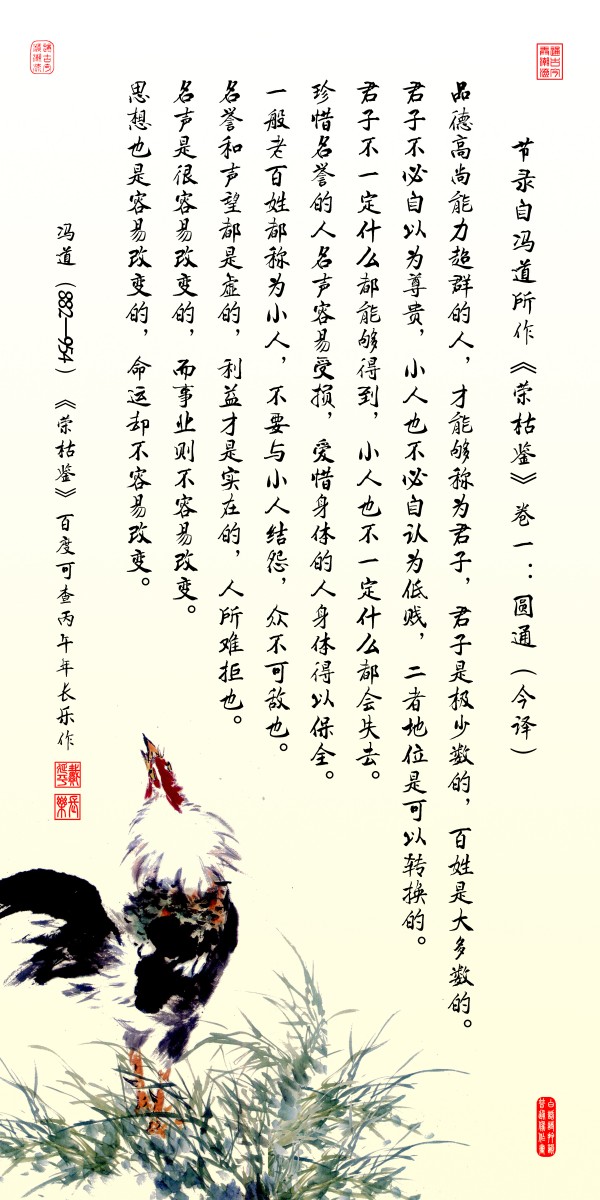 节录自冯道所作《荣枯鉴》卷一：圆通（今译）
品德高尚能力超群的人，才能够称为君子，君子是极少数的，百姓是大多数的。
君子不必自以为尊贵，小人也不必自认为低贱，二者地位是可以转换的。
君子不一定什么都能够得到，小人也不一定什么都会失去。
珍惜名誉的人名声容易受损，爱惜身体的人身体得以保全。
一般老百姓都称为小人，不要与小人结怨，众不可敌也。
名誉和声望都是虚的，利益才是实在的，人所难拒也。
名声是很容易改变的，而事业则不容易改变。
思想也是容易改变的，命运却不容易改变。
冯道（882—954）《荣枯鉴》百度可查丙午年长乐作